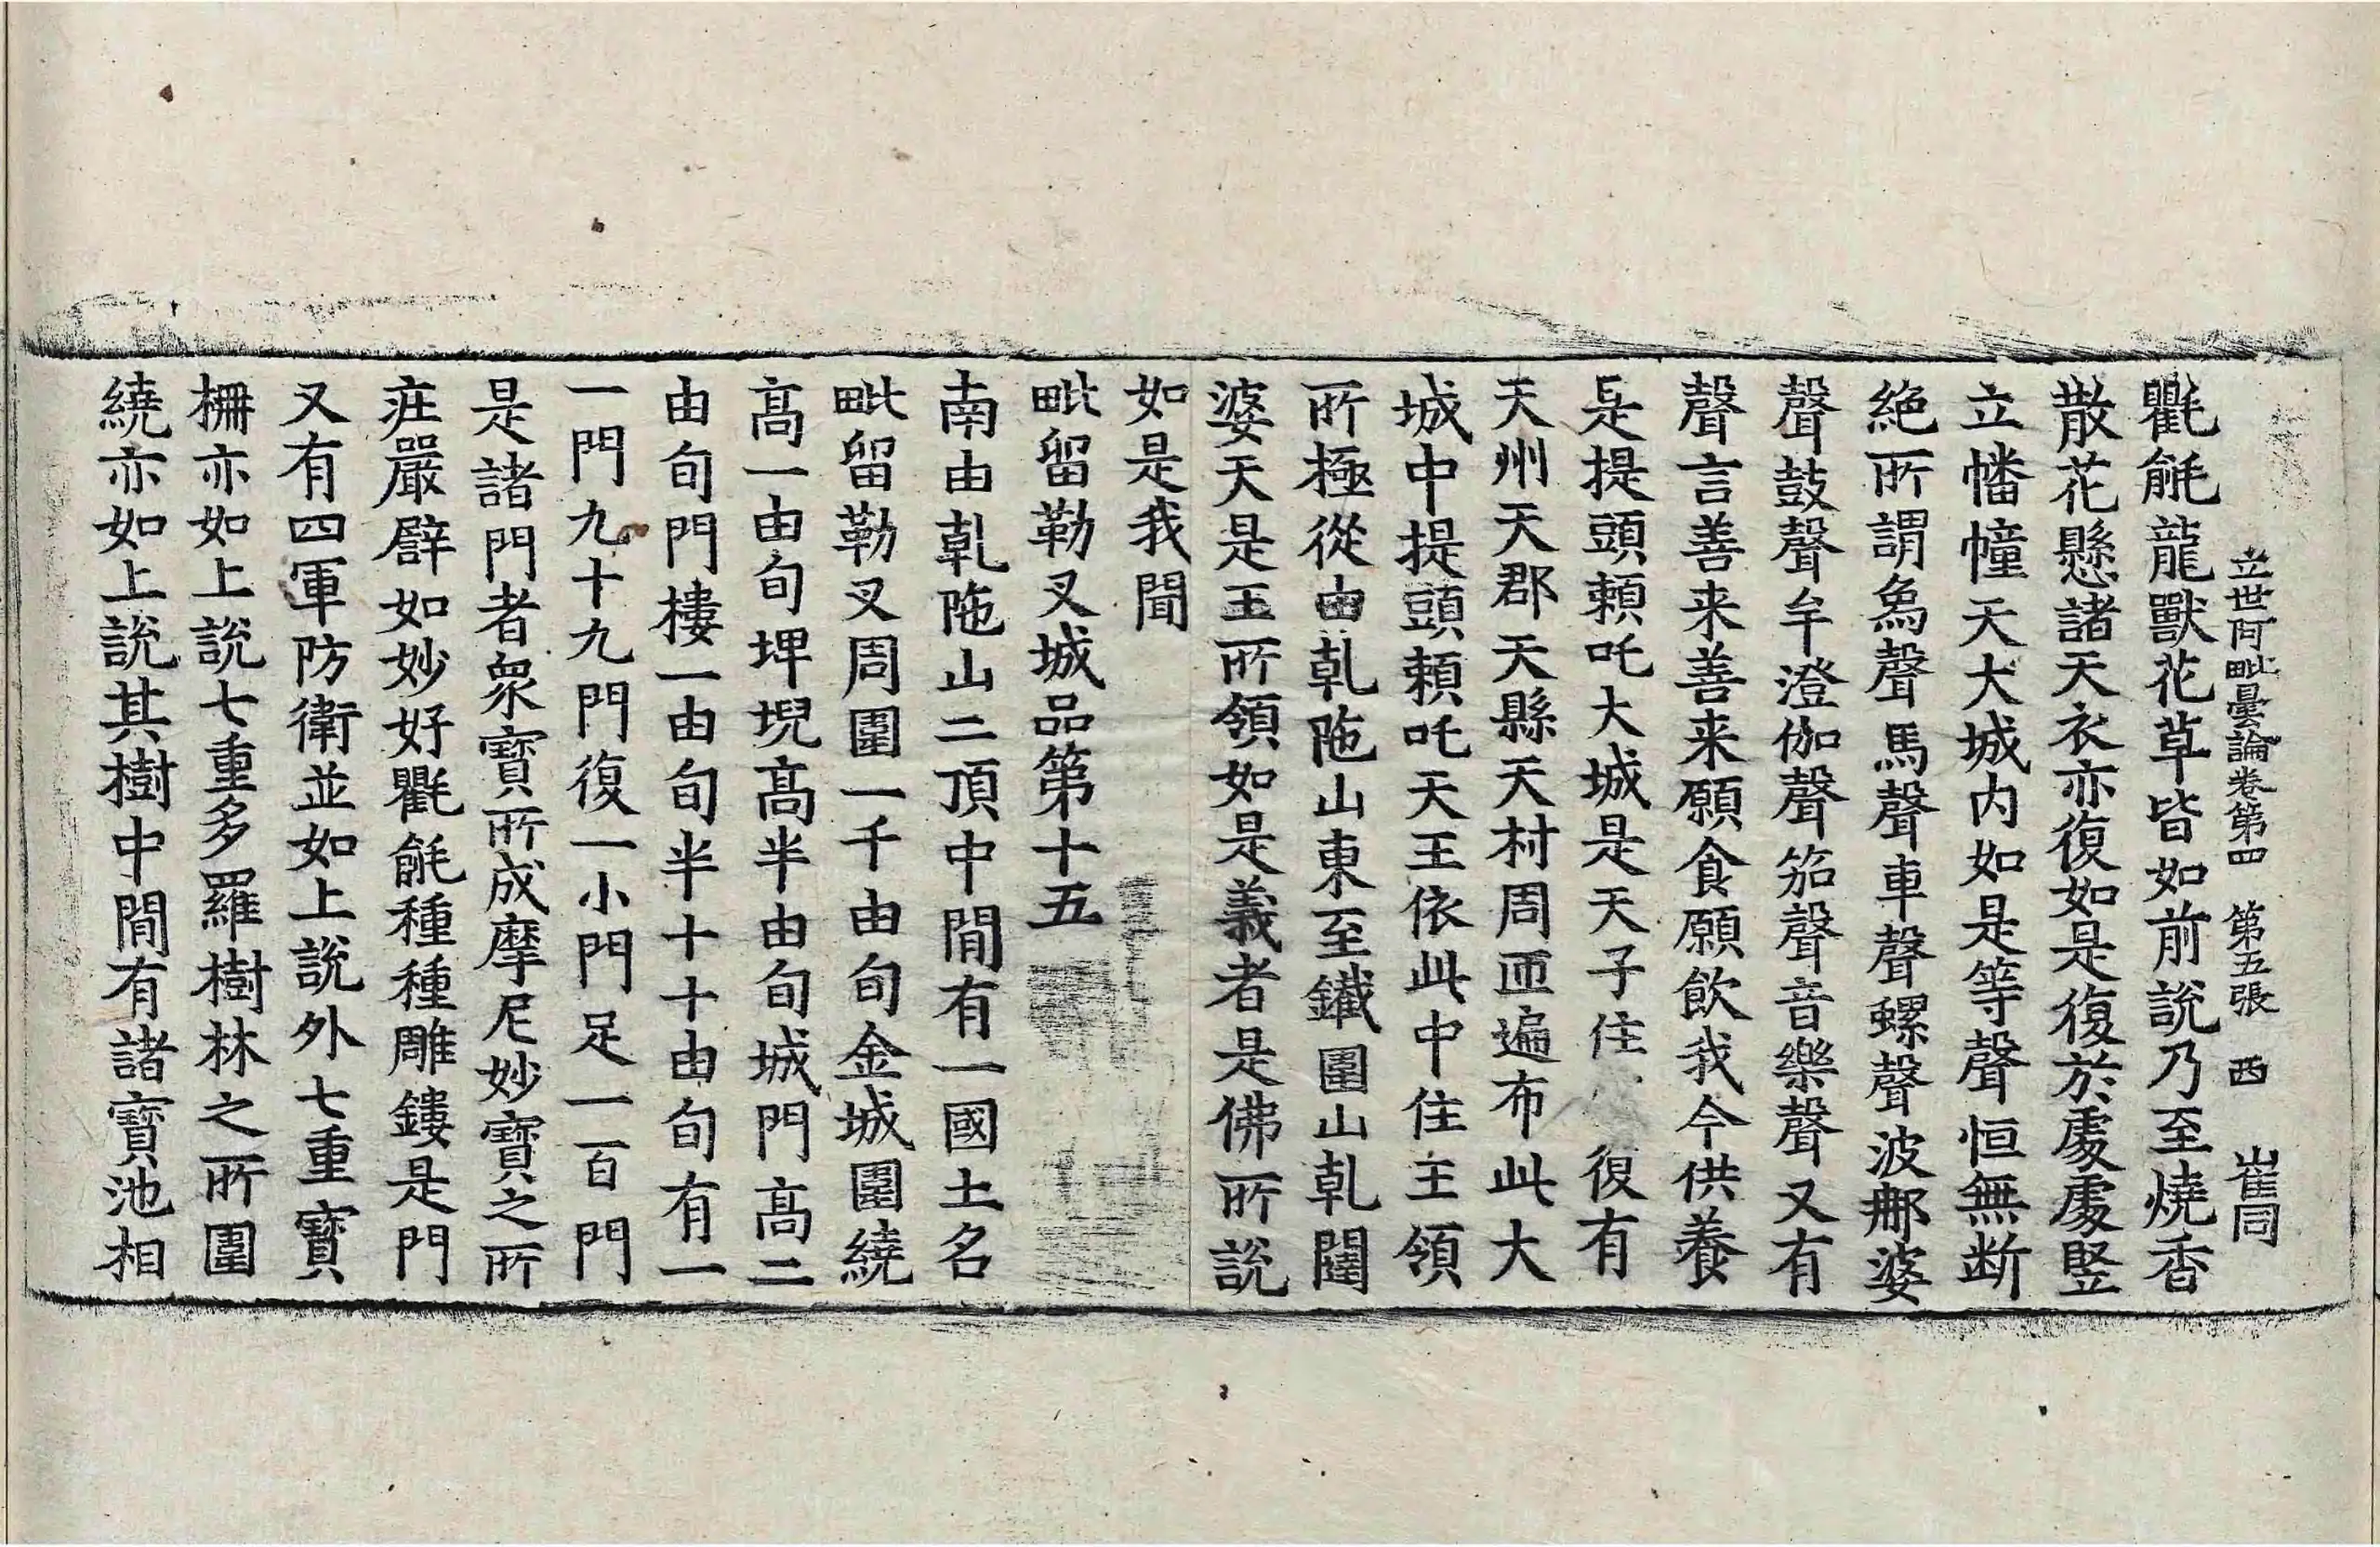 立世阿毗曇論卷第四 第五張 西 崔同
氍毹龍獸花草皆如前說乃至燒香
散花懸諸天衣亦復如是復於處處竪
立幡幢天大城内如是等聲恒無断
絶所謂象聲馬聲車聲螺聲波那婆
聲鼓聲牟澄伽聲笳聲音樂聲又有
聲言善来善来願食願飲我今供養
是提頭頼吒大城是天子住 復有
天州天郡天縣天村周迊遍布此大
城中提頭頼吒天王依此中住主領
所極從由乹陁山東至鐵圍山乹闥
婆天是王所領如是義者是佛所説
如是我聞
毗留勒叉城品第十五
南由乹陁山二頂中間有一國土名
毗留勒叉周圍一千由旬金城圍繞
髙一由旬埤堄髙半由旬城門髙二
由旬門樓一由旬半十十由旬有一
一門九十九門復一小門足一百門
是諸門者衆寳所成摩尼妙寳之所
莊嚴譬如妙好氍毹種種雕鏤是門
又有四軍防衛並如上說外七重寳
柵亦如上說七重多羅樹林之所圍
繞亦如上說其樹中間有諸寳池相